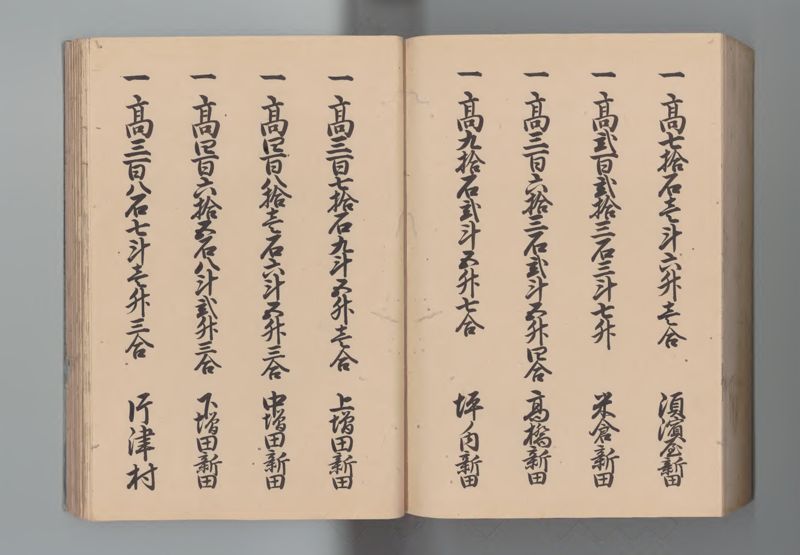 一高七拾石壱斗六升壱合 須濱屋新田
一高弐百弐拾三石三斗七升 米倉新田
一高三百六拾三石弐斗五升四合 高橋新田
一高九拾石弐斗五升七合 坪ノ内新田
一高三百七拾石九斗五升壱合 上増田新田
一高四百八拾壱石六斗五升三合 中増田新田
一高四百六拾五石八斗弐升三合 下増田新田
一高三百八石七斗壱升三合 片津村